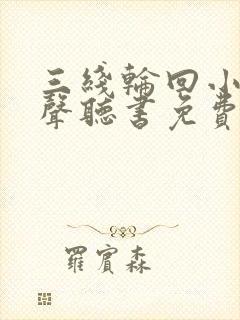 三綫輪回小
聲聽書免費
羅賓森